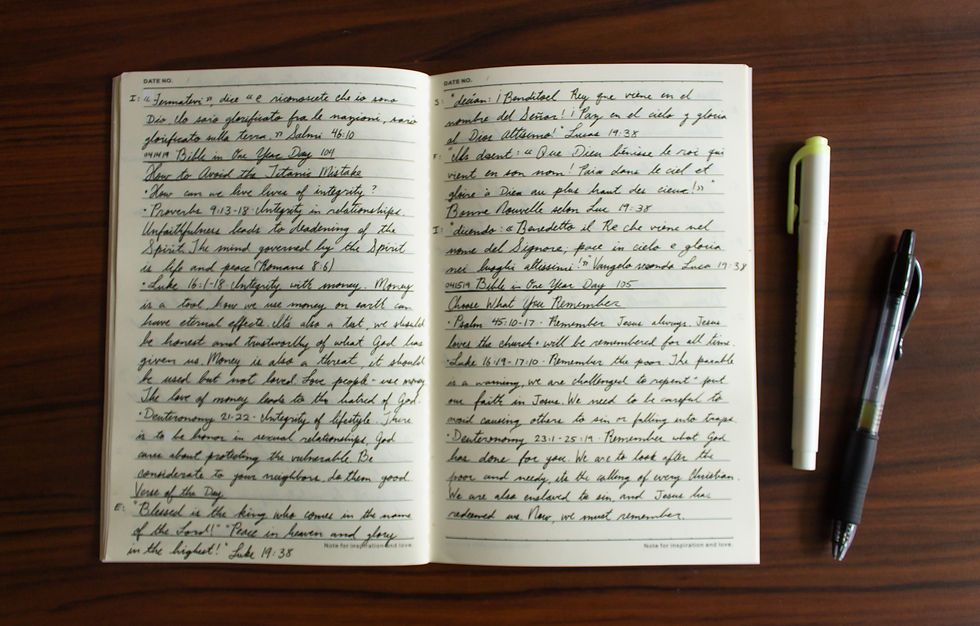 DATE NO.
I: "« Fermatevi » dice « e riconoscete che io sono
Dio. Io sarò glorificato fra le nazioni, sarò
glorificato sulla terra. »" Salmi 46:10
041419 Bible in One Year Day 104
How to Avoid the Titanic Mistake
• How can we live lives of integrity?
• Proverbs 9:13-18 Integrity in relationships.
Unfaithfulness leads to deadening of the
Spirit. The mind governed by the Spirit
is life and peace (Romans 8:6)
• Luke 16:1-18 Integrity with money. Money
is a tool, how we use money on earth can
have eternal effects. It's also a test, we should
be honest and trustworthy of what God has
given us. Money is also a threat, it should
be used but not loved. Love people - use money.
The love of money leads to the hatred of God.
• Deuteronomy 21-22 • Integrity of lifestyle. There
is to be honor in sexual relationships. God
cares about protecting the vulnerable. Be
considerate to your neighbors, do them good.
Verse of the Day
E: "Blessed is the king who comes in the name
of the Lord!" "Peace in heaven and glory
in the highest!" Luke 19:38
Note for inspiration and love.
DATE NO.
S: "decían: ¡Benditoel Rey que viene en el
nombre del Señor! ¡Paz en el cielo y gloria
al Dios Altísimo!" Lucas 19:38
F: "Ils disent: « Que Dieu bénisse le roi qui
vient en son nom! Paix dans le ciel et
gloire à Dieu au plus haut des cieux! »"
Bonne Nouvelle selon Luc 19:38
I: "dicendo: « Benedetto il Re che viene nel
nome del Signore; pace in cielo e gloria
nei luoghi altissimi! »" Vangelo secondo Luca 19:38
041519 Bible in One Year Day 105
Choose What You Remember
• Psalm 45:10-17 • Remember Jesus always. Jesus
loves the church + will be remembered for all time.
• Luke 16:19-17:10 • Remember the poor. The parable
is a warning, we are challenged to repent + put
our faith in Jesus. We need to be careful to
avoid causing others to sin or falling into traps.
• Deuteronomy 23:1-25:19 • Remember what God
has done for you. We are to look after the
poor and needy, its the calling of every Christian.
We are also enslaved to sin and Jesus has
redeemed us. Now, we must remember.
Note for inspiration and love.